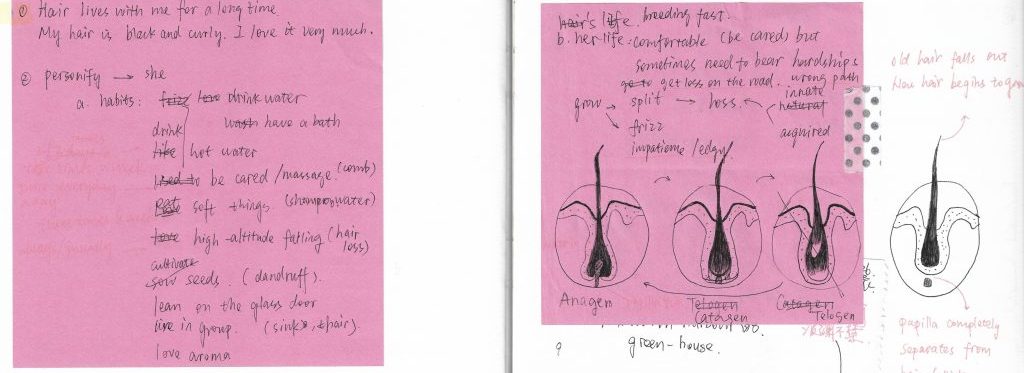 ① Hair lives with me for a long time.
My hair is black and curly. I love it very much.
② personify → she
a. habits: frizz love drink water
wash have a bath
drink
like hot water
used to be cared / massage. (comb)
soft things (shampoo, water)
love high-altitude falling (hair loss)
cultivate
sow seeds. (dandruff).
lean on the glass door
live in group. (sink, hair).
love aroma
hair's life. breeding fast.
b. her life: comfortable (be cared) but
sometimes need to bear hardships
go to get loss on the road. wrong path
grow split → loss. innate
natural
frizz acquired
impatience / edgy
Anagen
Telogen
Catagen
Catagen
Telogen
green-house.
old hair falls out
New hair begins to grow
papilla completely
separates from